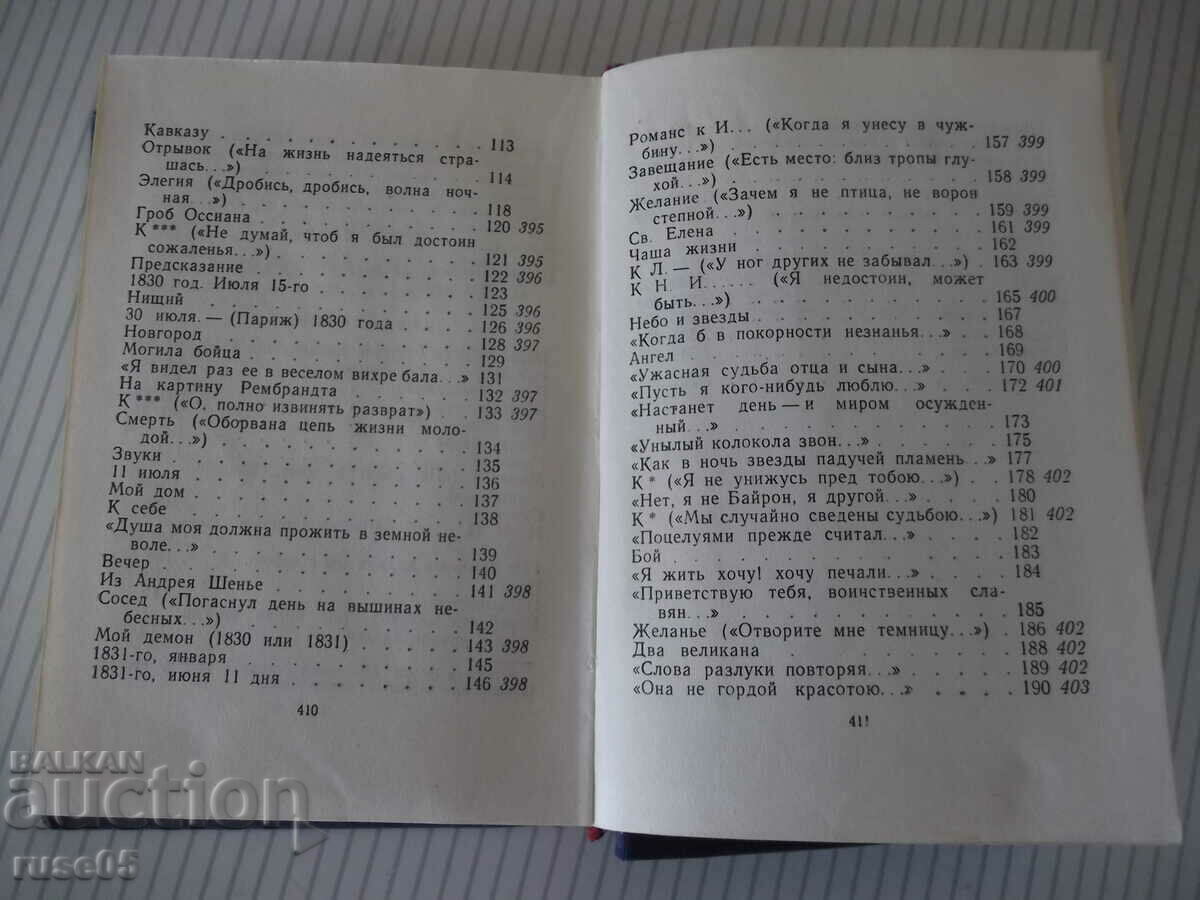 Кавказу . . . . . . . . . . . . . 113
Отрывок («На жизнь надеяться стра-
шась. . .») . . . . . . . . . . . 114
Элегия («Дробись, дробись, волна ноч-
ная. . .») . . . . . . . . . . . 118
Гроб Оссиана . . . . . . . . . . 120 395
К *** («Не думай, чтоб я был достоин
сожаленья. . .») . . . . . . . . 121 395
Предсказание . . . . . . . . . . 122 396
1830 год. Июля 15-го . . . . . . . 123
Нищий . . . . . . . . . . . . . 125 396
30 июля. — (Париж) 1830 года . . . . 126 396
Новгород . . . . . . . . . . . . 128 397
Могила бойца . . . . . . . . . . 129
«Я видел раз ее в веселом вихре бала. . .» 131
На картину Рембрандта . . . . . . 132 397
К *** («О, полно извинять разврат») . . . 133 397
Смерть («Оборвана цепь жизни моло-
дой. . .») . . . . . . . . . . . 134
Звуки . . . . . . . . . . . . . 135
11 июля . . . . . . . . . . . . 136
Мой дом . . . . . . . . . . . . 137
К себе . . . . . . . . . . . . . 138
«Душа моя должна прожить в земной не-
воле. . .» . . . . . . . . . . . 139
Вечер . . . . . . . . . . . . . 140
Из Андрея Шенье . . . . . . . . . 141 398
Сосед («Погаснул день на вышинах не-
бесных. . .») . . . . . . . . . . 142
Мой демон (1830 или 1831) . . . . . 143 398
1831-го, января . . . . . . . . . 145
1831-го, июня 11 дня . . . . . . . 146 398
410
Романс к И. . . («Когда я унесу в чуж-
бину. . .») . . . . . . . . . . . 157 399
Завещание («Есть место: близ тропы глу-
хой. . .») . . . . . . . . . . . 158 399
Желание («Зачем я не птица, не ворон
степной. . .») . . . . . . . . . 159 399
Св. Елена . . . . . . . . . . . 161 399
Чаша жизни . . . . . . . . . . . 162
К Л. — («У ног других не забывал. . .») . 163 399
К Н. И. . . . . . («Я недостоин, может
быть. . .») . . . . . . . . . . . 165 400
Небо и звезды . . . . . . . . . . 167
«Когда б в покорности незнанья. . .» . . 168
Ангел . . . . . . . . . . . . . 169
«Ужасная судьба отца и сына. . .» . . . 170 400
«Пусть я кого-нибудь люблю. . .» . . . 172 401
«Настанет день — и миром осужден-
ный. . .» . . . . . . . . . . . 173
«Унылый колокола звон. . .» . . . . . 175
«Как в ночь звезды падучей пламень. . .» 177
К * («Я не унижусь пред тобою. . .») . . 178 402
«Нет, я не Байрон, я другой. . .» . . . 180
К * («Мы случайно сведены судьбою. . .») 181 402
«Поцелуями прежде считал. . .» . . . . 182
Бой . . . . . . . . . . . . . . 183
«Я жить хочу! хочу печали. . .» . . . . 184
«Приветствую тебя, воинственных сла-
вян. . .» . . . . . . . . . . . 185
Желанье («Отворите мне темницу. . .») . 186 402
Два великана . . . . . . . . . . 188 402
«Слова разлуки повторяя. . .» . . . . 189 402
«Она не гордой красотою. . .» . . . . 190 403
411
BALKAN
auction
ruse05